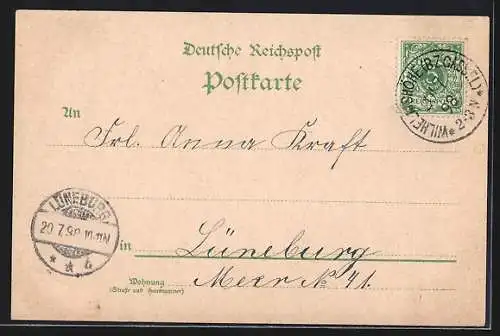 Deutsche Reichspost
Postkarte
WILHELMSHÖHE (BZ. CASSEL)
2-3 N
An
Frl. Anna Kraft
LÜNEBURG
20 7.98 10-11N
* * 4
in Lüneburg
Wohnung
(Straße und Hausnummer)
Meer No 41.